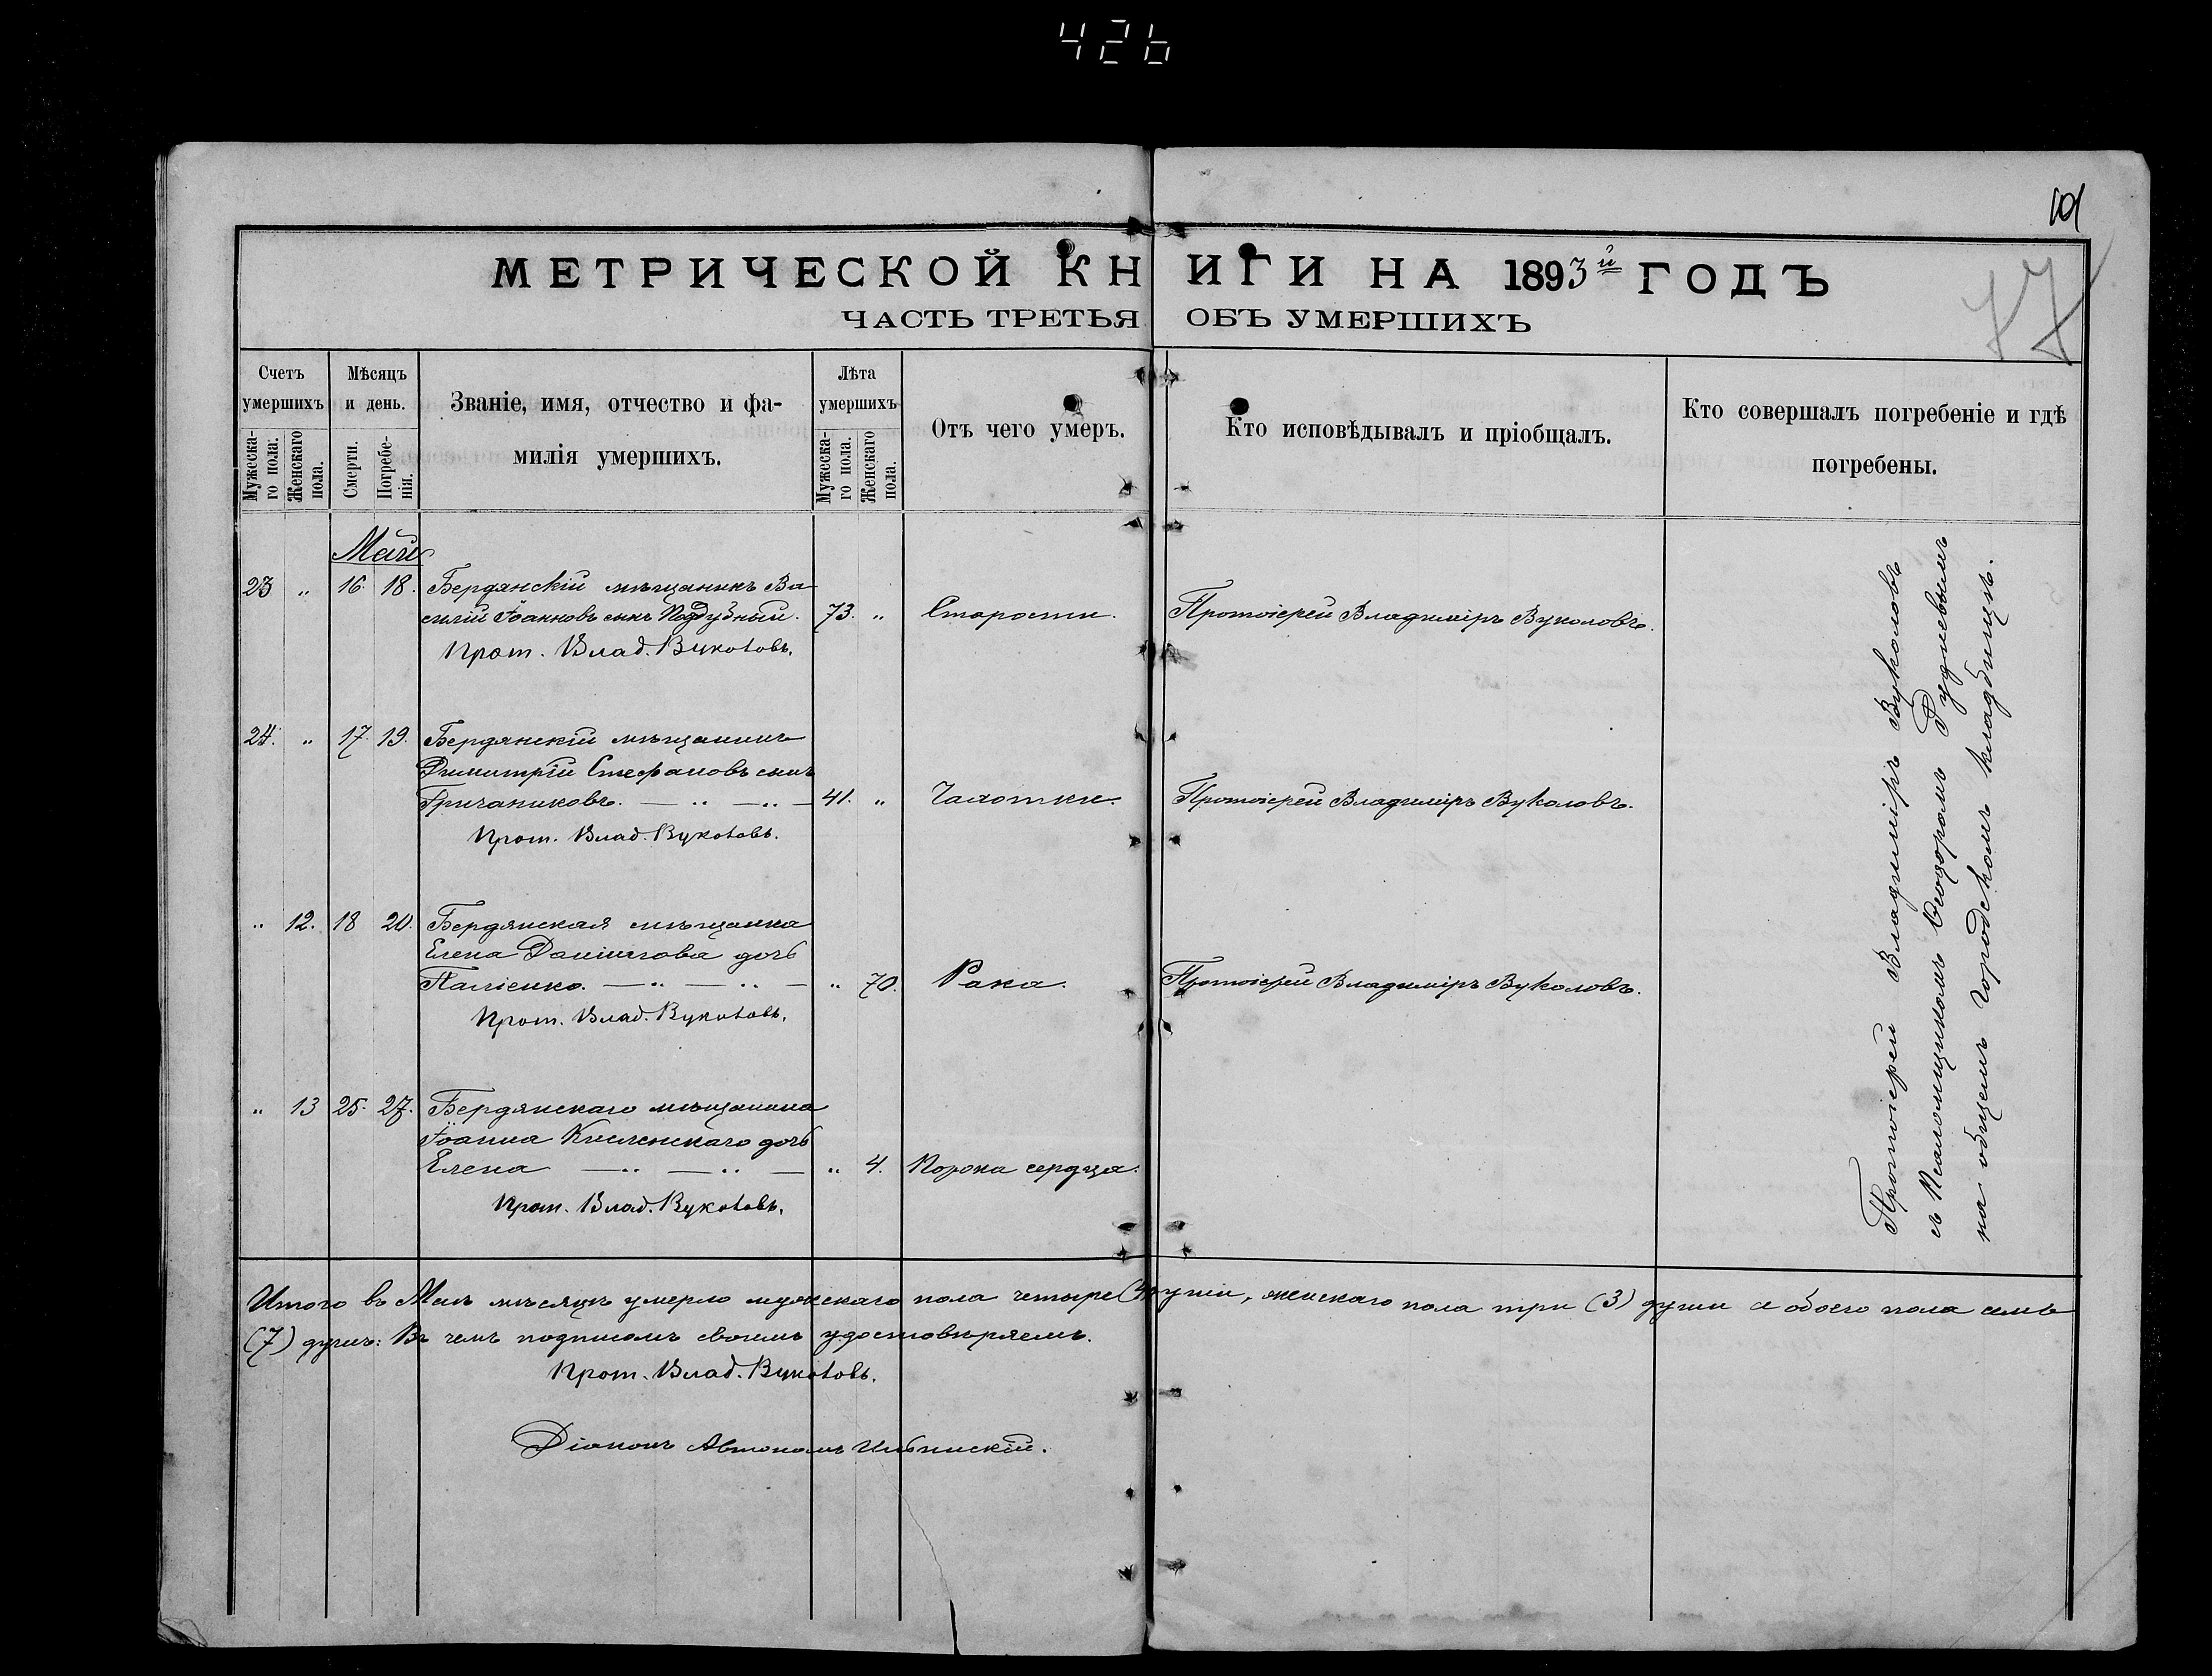 426
101
МЕТРИЧЕСКОЙ КНИГИ НА 1893й ГОДЪ
17
ЧАСТЬ ТРЕТЬЯ ОБЪ УМЕРШИХЪ
Счетъ умершихъ
Мѣсяцъ и день.
Званіе, имя, отчество и фа-
милія умершихъ.
Лѣта умершихъ
Отъ чего умеръ.
Кто исповѣдывалъ и пріобщалъ.
Кто совершалъ погребеніе и гдѣ
погребены.
Мужеска-го пола.
Женскаго пола.
Смерти.
Погребе-нія.
Мужеска-го пола.
Женскаго пола.
Май
23 „ 16. 18. Бердянскій мѣщанинъ Ва-
силій Іоанновъ сынъ Поддубный. 73. „ Старости. Протоіерей Владиміръ Вуколовъ.
Прот. Влад. Вуколовъ.
24. „ 17. 19. Бердянскій мѣщанинъ
Димитрій Стефановъ сынъ
Гричаниковъ. — „ — „ — 41. „ Чахотки. Протоіерей Владиміръ Вуколовъ.
Прот. Влад. Вуколовъ.
„ 12. 18 20. Бердянская мѣщанка
Елена Даніилова дочь
Паліенко. — „ — „ — „ 70. Рака. Протоіерей Владиміръ Вуколовъ.
Прот. Влад. Вуколовъ.
„ 13 25. 27. Бердянскаго мѣщанина
Іоанна дочь
Елена — „ — „ — „ 4. Порока сердца.
Прот. Влад. Вуколовъ.
Протоіерей Владиміръ Вуколовъ
съ Псаломщикомъ Ѳеодоромъ Рудневымъ
на общемъ городскомъ кладбищѣ.
Итого въ Маѣ мѣсяцѣ умерло мужскаго пола четыре (4) души, женскаго пола три (3) души а обоего пола семь
(7) душъ: Въ чемъ подписомъ своимъ удостовѣряемъ.
Прот. Влад. Вуколовъ.
Діаконъ Автономъ